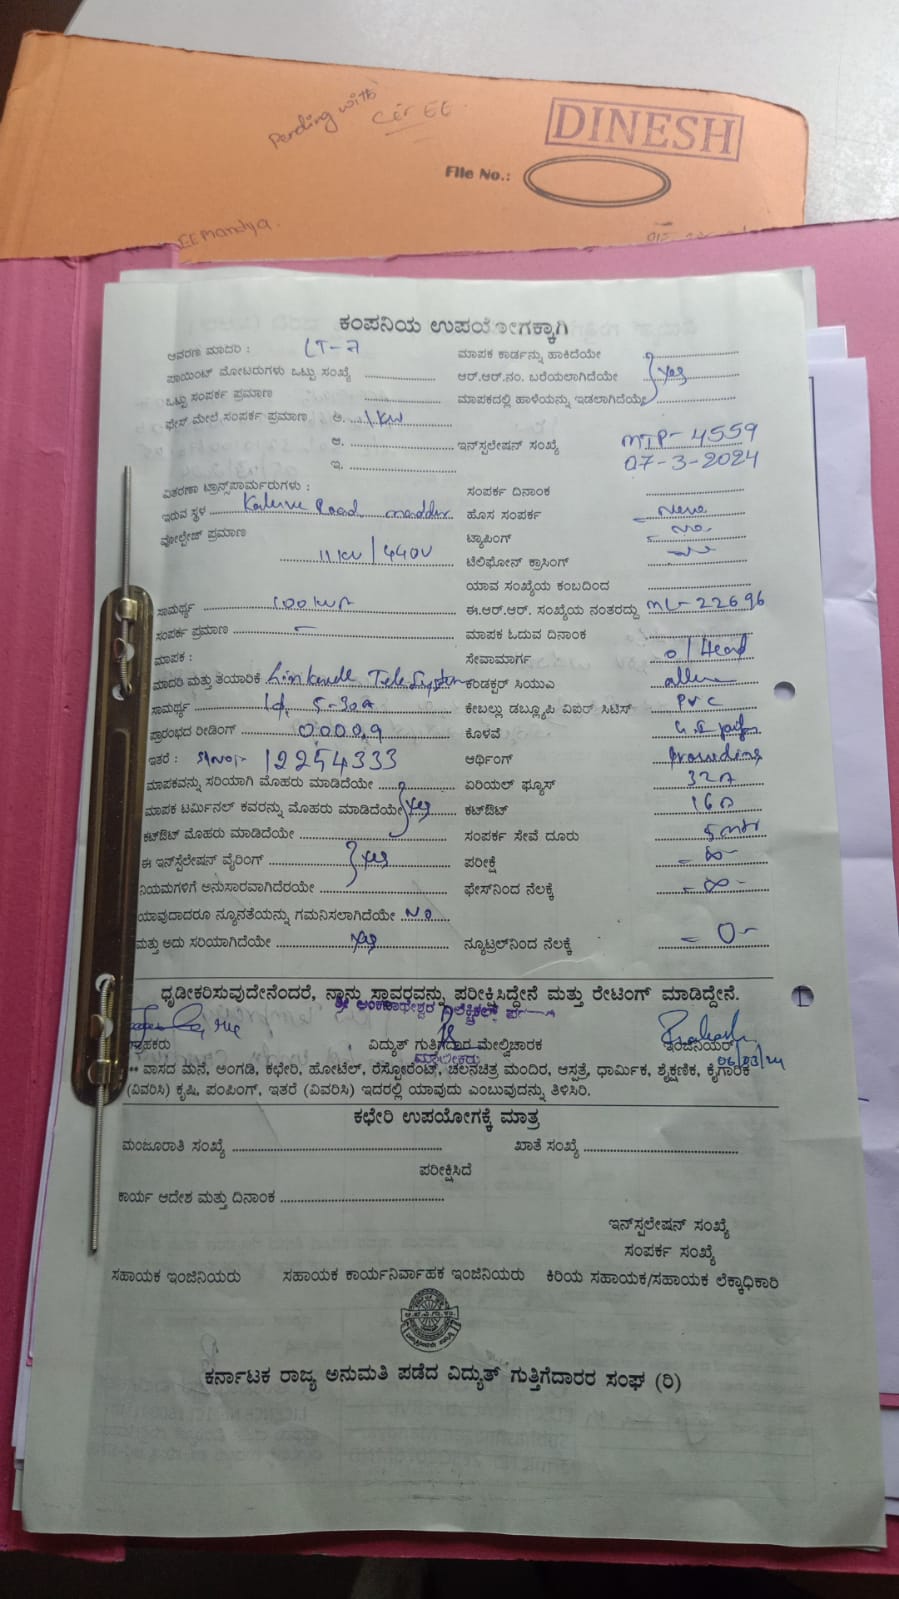 Pending with
Cir EE.
DINESH
File No.:
EE Mandya.
ಕಂಪನಿಯ ಉಪಯೋಗಕ್ಕಾಗಿ
ಆವರಣ ಮಾದರಿ : LT-7 ಮಾಪಕ ಕಾರ್ಡನ್ನು ಹಾಕಿದೆಯೇ
ಪಾಯಿಂಟ್ ಮೋಟರುಗಳು ಒಟ್ಟು ಸಂಖ್ಯೆ ಆರ್.ಆರ್.ನಂ. ಬರೆಯಲಾಗಿದೆಯೇ yes
ಒಟ್ಟು ಸಂಪರ್ಕ ಪ್ರಮಾಣ ಮಾಪಕದಲ್ಲಿ ಹಾಳೆಯನ್ನು ಇಡಲಾಗಿದೆಯೇ
ಫೇಸ್ ಮೇಲೆ ಸಂಪರ್ಕ ಪ್ರಮಾಣ ಅ. 1KW
ಆ. ಇನ್‌ಸ್ಟಲೇಷನ್ ಸಂಖ್ಯೆ MTP-4559
ಇ. 07-3-2024
ವಿತರಣಾ ಟ್ರಾನ್ಸ್‌ಪಾರ್ಮರುಗಳು : ಸಂಪರ್ಕ ದಿನಾಂಕ
ಇರುವ ಸ್ಥಳ Road maddur ಹೊಸ ಸಂಪರ್ಕ
ವೋಲ್ಟೇಜ್ ಪ್ರಮಾಣ ಟ್ಯಾಪಿಂಗ್ - No.
11KV/440V ಟೆಲಿಫೋನ್ ಕ್ರಾಸಿಂಗ್
ಯಾವ ಸಂಖ್ಯೆಯ ಕಂಬದಿಂದ
ಸಾಮರ್ಥ್ಯ 100KVA ಈ.ಆರ್.ಆರ್. ಸಂಖ್ಯೆಯ ನಂತರದ್ದು ML-22696
ಸಂಪರ್ಕ ಪ್ರಮಾಣ - ಮಾಪಕ ಓದುವ ದಿನಾಂಕ
ಮಾಪಕ : ಸೇವಾಮಾರ್ಗ o/Head
ಮಾದರಿ ಮತ್ತು ತಯಾರಿಕೆ Tele System ಕಂಡಕ್ಟರ್ ಸಿಯುಎ
ಸಾಮರ್ಥ್ಯ 5-30A ಕೇಬಲ್ಲು ಡಬ್ಲ್ಯೂಪಿ ವಿಐರ್ ಸಿಟಿಸ್ PVC
ಪ್ರಾರಂಭದ ರೀಡಿಂಗ್ 0000.9 ಕೊಳವೆ G.I pipe
ಇತರೆ : Slno:- 12254333 ಆರ್ಥಿಂಗ್
ಮಾಪಕವನ್ನು ಸರಿಯಾಗಿ ಮೊಹರು ಮಾಡಿದೆಯೇ ಏರಿಯಲ್ ಫ್ಯೂಸ್ 32A
ಮಾಪಕ ಟರ್ಮಿನಲ್ ಕವರನ್ನು ಮೊಹರು ಮಾಡಿದೆಯೇ yes ಕಟ್‌ಔಟ್ 16A
ಕಟ್‌ಔಟ್ ಮೊಹರು ಮಾಡಿದೆಯೇ ಸಂಪರ್ಕ ಸೇವೆ ದೂರು 5mtr
ಈ ಇನ್‌ಸ್ಟೆಲೇಷನ್ ವೈರಿಂಗ್ yes ಪರೀಕ್ಷೆ - ∞ -
ನಿಯಮಗಳಿಗೆ ಅನುಸಾರವಾಗಿದೆರೆಯೇ ಫೇಸ್‌ನಿಂದ ನೆಲಕ್ಕೆ - ∞ -
ಯಾವುದಾದರೂ ನ್ಯೂನತೆಯನ್ನು ಗಮನಿಸಲಾಗಿದೆಯೇ NO
ಮತ್ತು ಅದು ಸರಿಯಾಗಿದೆಯೇ yes ನ್ಯೂಟ್ರಲ್‌ನಿಂದ ನೆಲಕ್ಕೆ - 0 -
ಧೃಡೀಕರಿಸುವುದೇನೆಂದರೆ, ನ್ನಾನು ಸ್ಥಾವರವನ್ನು ಪರೀಕ್ಷಿಸಿದ್ದೇನೆ ಮತ್ತು ರೇಟಿಂಗ್ ಮಾಡಿದ್ದೇನೆ.
ಗ್ರಾಹಕರು ವಿದ್ಯುತ್ ಗುತ್ತಿಗೆದಾರ ಮೇಲ್ವಿಚಾರಕ ಇಂಜಿನಿಯರ್
ಮಾಲೀಕರು 06/03/24
** ವಾಸದ ಮನೆ, ಅಂಗಡಿ, ಕಛೇರಿ, ಹೋಟೆಲ್, ರೆಸ್ಟೋರೆಂಟ್, ಚಲನಚಿತ್ರ ಮಂದಿರ, ಆಸ್ಪತ್ರೆ, ಧಾರ್ಮಿಕ, ಶೈಕ್ಷಣಿಕ, ಕೈಗಾರಿಕೆ
(ವಿವರಿಸಿ) ಕೃಷಿ, ಪಂಪಿಂಗ್, ಇತರೆ (ವಿವರಿಸಿ) ಇದರಲ್ಲಿ ಯಾವುದು ಎಂಬುವುದನ್ನು ತಿಳಿಸಿರಿ.
ಕಛೇರಿ ಉಪಯೋಗಕ್ಕೆ ಮಾತ್ರ
ಮಂಜೂರಾತಿ ಸಂಖ್ಯೆ ಖಾತೆ ಸಂಖ್ಯೆ
ಪರೀಕ್ಷಿಸಿದೆ
ಕಾರ್ಯ ಆದೇಶ ಮತ್ತು ದಿನಾಂಕ
ಇನ್‌ಸ್ಟಲೇಷನ್ ಸಂಖ್ಯೆ
ಸಂಪರ್ಕ ಸಂಖ್ಯೆ
ಸಹಾಯಕ ಇಂಜಿನಿಯರು ಸಹಾಯಕ ಕಾರ್ಯನಿರ್ವಾಹಕ ಇಂಜಿನಿಯರು ಕಿರಿಯ ಸಹಾಯಕ/ಸಹಾಯಕ ಲೆಕ್ಕಾಧಿಕಾರಿ
ಕರ್ನಾಟಕ ರಾಜ್ಯ ಅನುಮತಿ ಪಡೆದ ವಿದ್ಯುತ್ ಗುತ್ತಿಗೆದಾರರ ಸಂಘ (ರಿ)